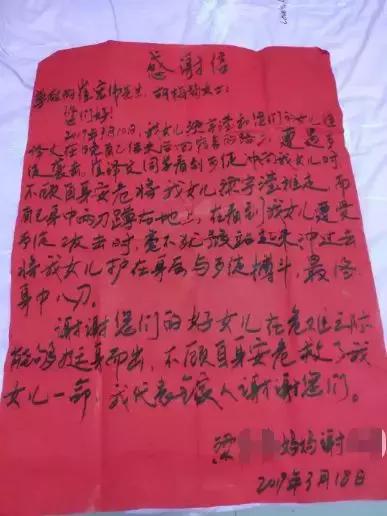 感谢信
尊敬的崔宏伟先生、胡梅女士:
您们好!
2019年3月10日,我女儿梁宇滢和您们的女儿崔
译文在晚自习结束后回宿舍的路上,遭遇歹
徒袭击,崔译文同学看到歹徒冲向我女儿时
不顾自身安危将我女儿梁宇滢推走,而
自己身中两刀蹲在地上,在看到我女儿遭受
歹徒攻击时,毫不犹豫站起来冲过去
将我女儿护在身后与歹徒搏斗,最后
身中八刀。
谢谢您们的好女儿在危难之际
能够挺身而出,不顾自身安危救了我
女儿一命,我代表全家人谢谢您们。
梁 妈妈谢
2019年3月18日